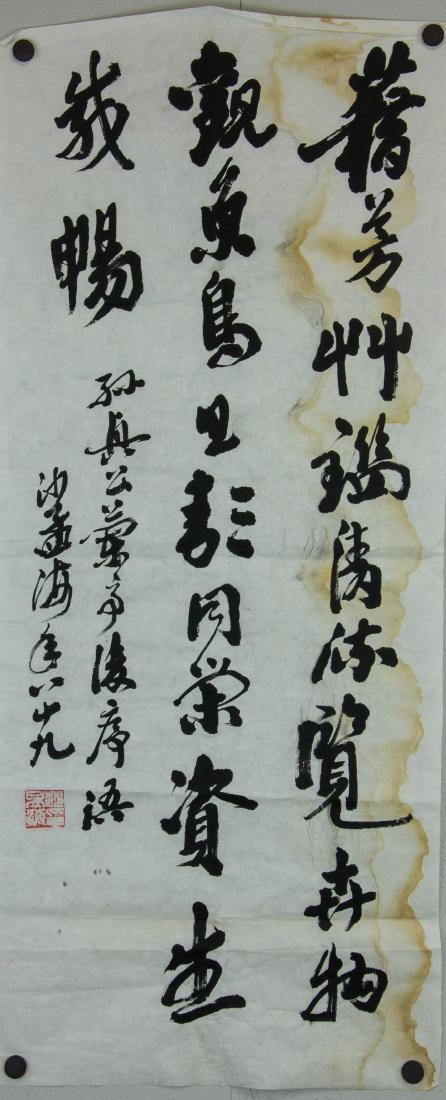 藉芳艸鑑清流覽卉物
觀魚鳥同榮資生
咸暢
孫興公蘭亭後序語
沙孟海年八十九